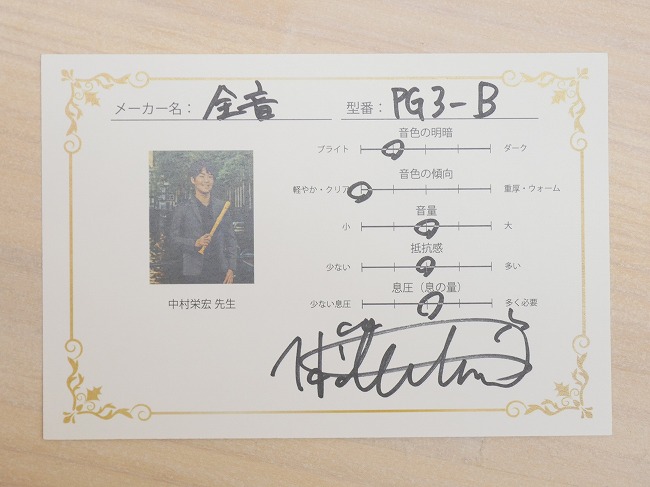 メーカー名： 全音 型番： PG3-B
音色の明暗
ブライト ダーク
音色の傾向
軽やか・クリア 重厚・ウォーム
音量
小 大
抵抗感
少ない 多い
息圧（息の量）
少ない息圧 多く必要
中村栄宏 先生